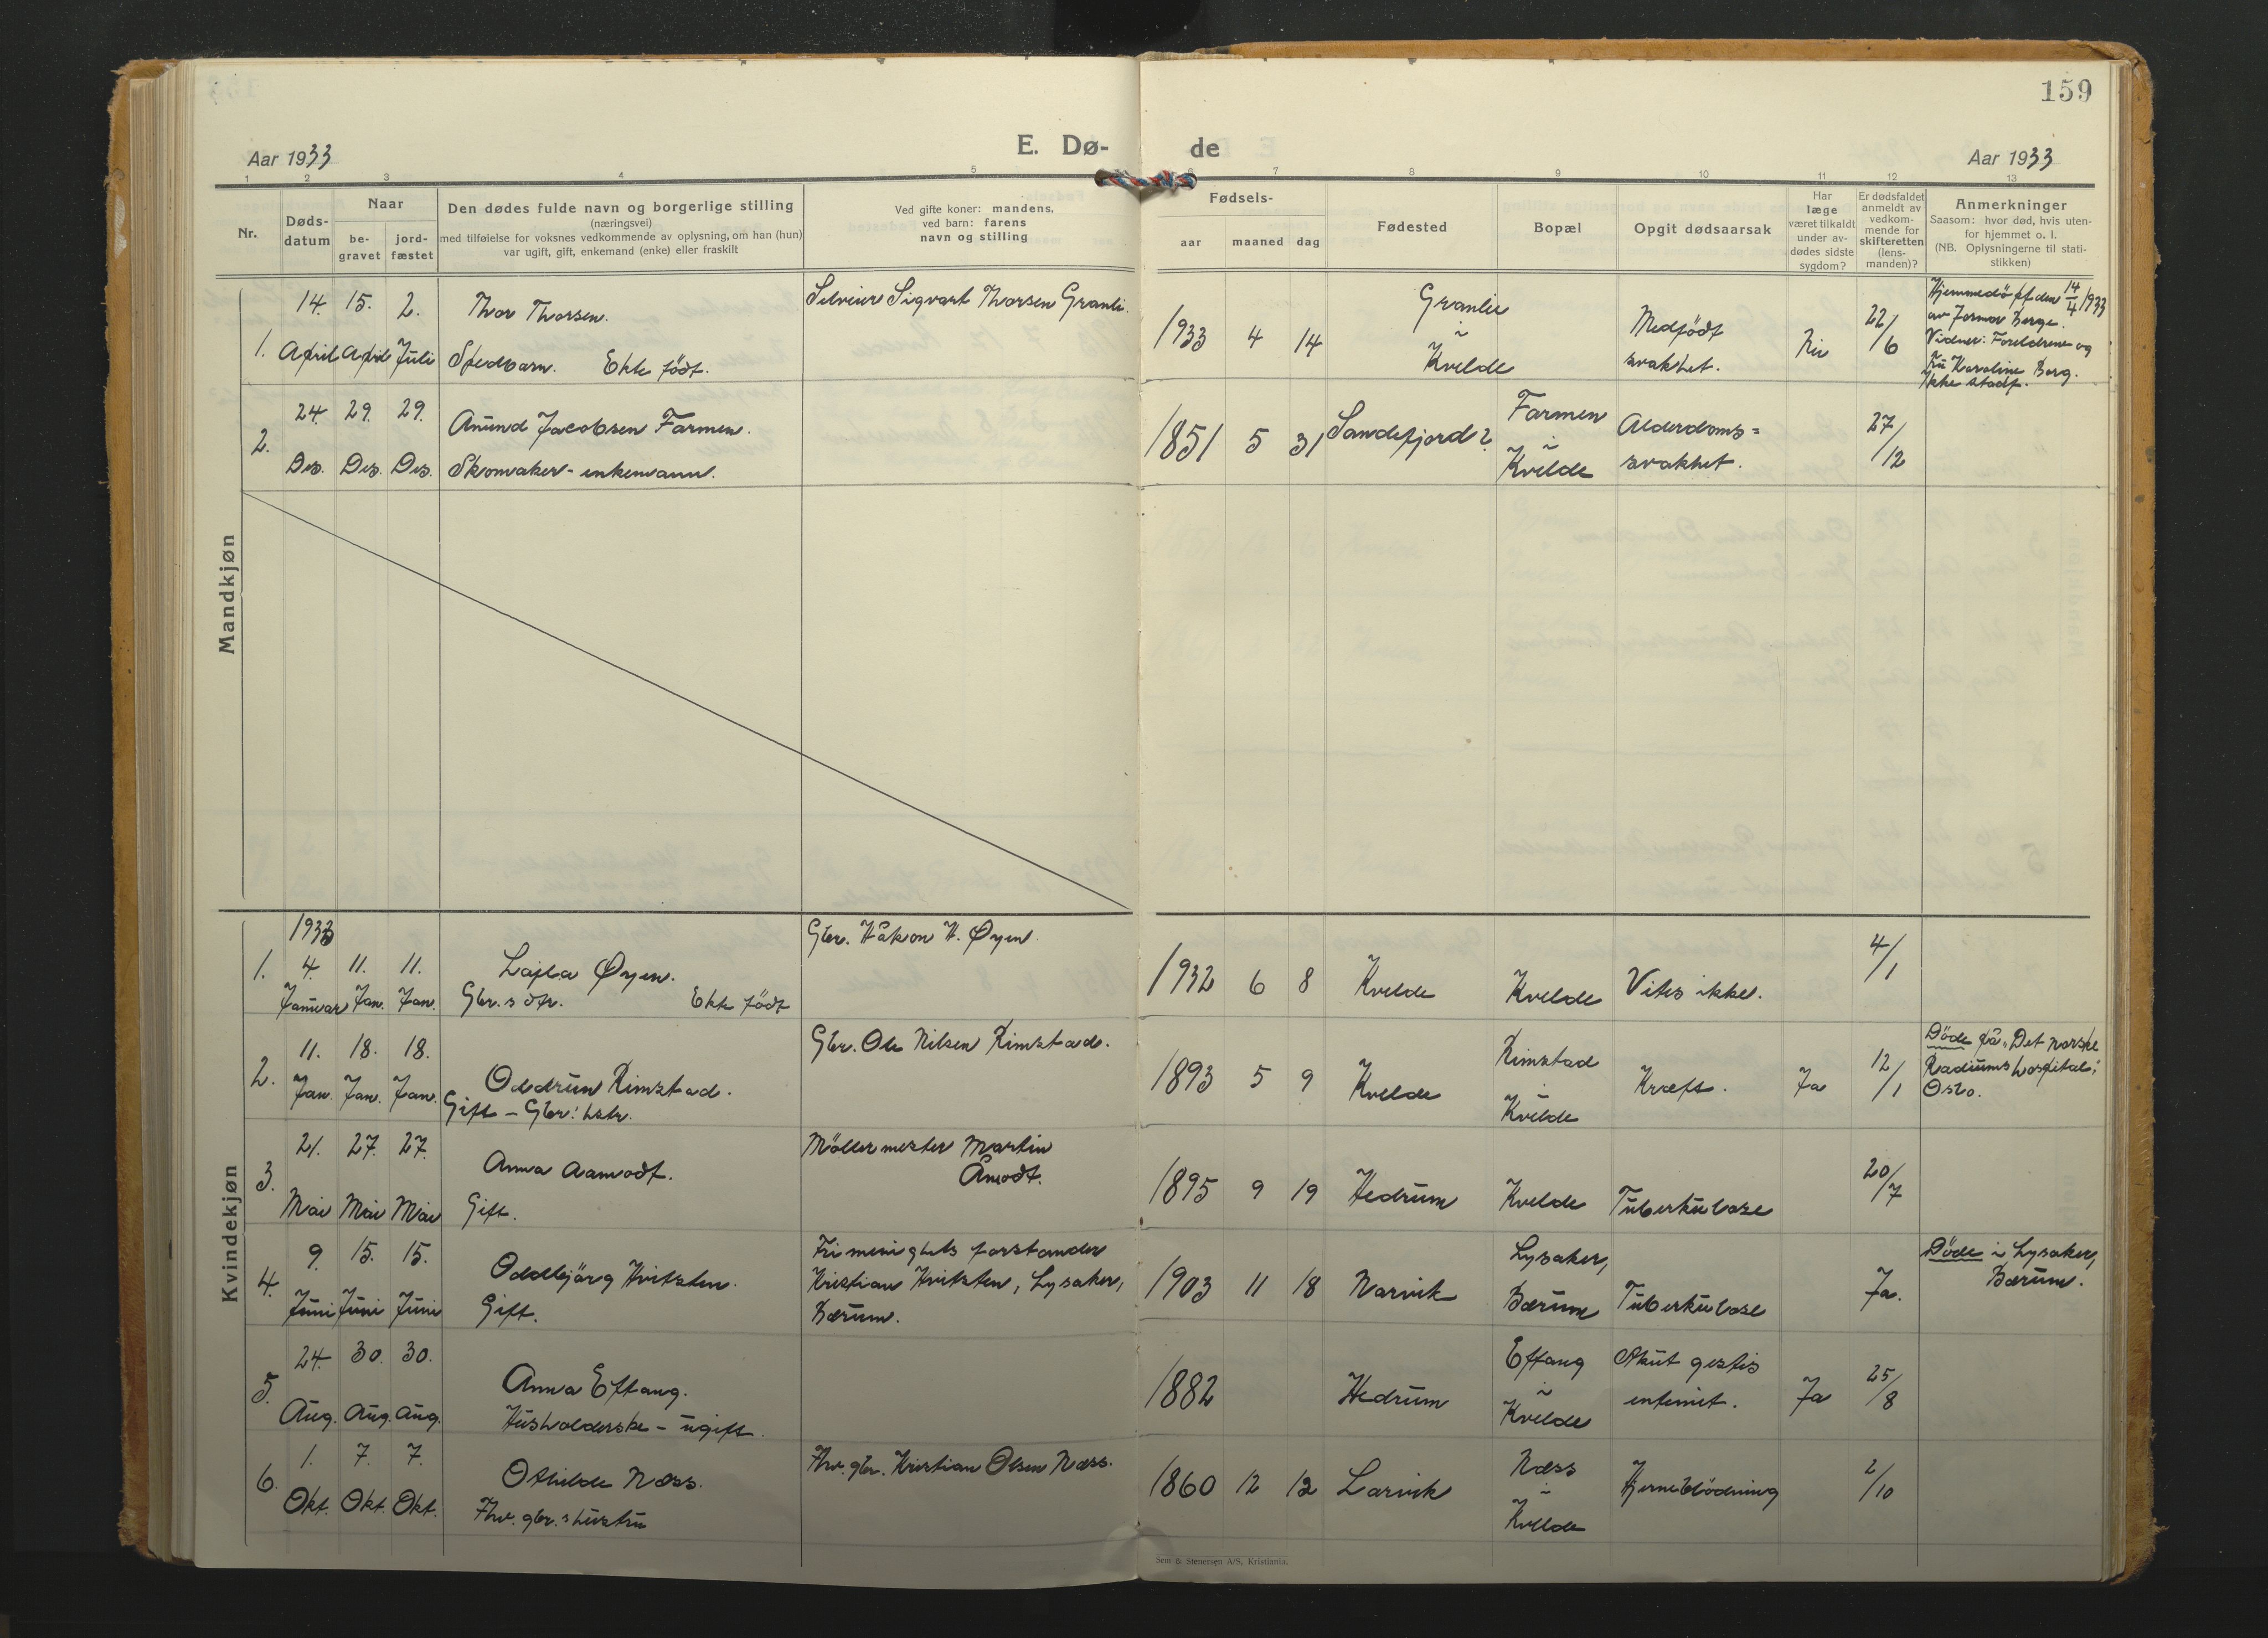 159
Aar 1933
E. Dø-
de
Aar 1933
1 2 3 4 5 6 7 8 9 10 11 12 13
Nr.
Døds-
datum
Naar
be-
gravet
jord-
fæstet
Den dødes fulde navn og borgerlige stilling
(næringsvei)
med tilføielse for voksnes vedkommende av oplysning, om han (hun)
var ugift, gift, enkemand (enke) eller fraskilt
Ved gifte koner: mandens,
ved barn: farens
navn og stilling
Fødsels-
aar maaned dag
Fødested
Bopæl
Opgit dødsaarsak
Har
læge
været tilkaldt
under av-
dødes sidste
sygdom?
Er dødsfaldet
anmeldt av
vedkom-
mende for
skifteretten
(lens-
manden)?
Anmerkninger
Saasom: hvor død, hvis uten-
for hjemmet o. l.
(NB. Oplysningerne til stati-
stikken)
Mandkjøn
1. 14. April 15. April 2. Juli
Thor Thorsen.
Spedbarn. Ekte födt.
Sigvart Thorsen Granli.
1933 4 14
Granlie
i
Kvelde
Medfödt
svakhet.
Nei
22/6
Hjemmedöpt den 14/4 1933
av Jormor Berge.
Vidner: Foreldrene og
fru Karoline Berg.
Ikke stadf.
2. 24. Des. 29. Des. 29. Des.
Anund Jacobsen Farmen.
Skomaker - enkemann.
1851 5 31 Sandefjord?
Farmen
i
Kvelde
Alderdoms=
svakhet.
27/12
Kvindekjøn
1933
1. 4. Januar 11. Jan. 11. Jan.
Lajla Øyen.
Gbr.s dtr. Ekte födt
Gbr. Håkon H. Øyen.
1932 6 8 Kvelde Kvelde Vites ikke.
4/1
2. 11. Jan. 18. Jan. 18. Jan.
Oddrun Rimstad.
Gift - Gbr: hstr.
Gbr. Ole Nilsen Rimstad.
1893 5 9 Kvelde
Rimstad
i
Kvelde
Kræft. Ja 12/1
Döde på "Det norske
Radiumshospital",
Oslo.
3. 21. Mai 27. Mai 27. Mai
Anna Aamodt.
Gift.
Möllermester Martin
Åmodt.
1895 9 19 Hedrum Kvelde Tuberkulose
20/7
4. 9. Juni 15. Juni 15. Juni
Oddbjörg Hvitsten.
Gift.
Frimenighets forstander
Kristian Hvitsten, Lysaker,
Bærum.
1903 11 18 Narvik
Lysaker,
Bærum Tuberkulose
Ja.
Döde i Lysaker,
Bærum.
5. 24. Aug. 30. Aug. 30. Aug.
Anna Eftang.
Husholderske - ugift.
1882 Hedrum
Eftang
i
Kvelde
Akut
Ja
25/8
6. 1. Okt. 7. Okt. 7. Okt.
Othilde Næss.
Fhv. gbr.s hustru
Fhv. gbr. Kristian Olsen Næss.
1860 12 12 Larvik
Næss
i
Kvelde
Hjerneblödning
2/10
Sem & Stenersen A/S, Kristiania.